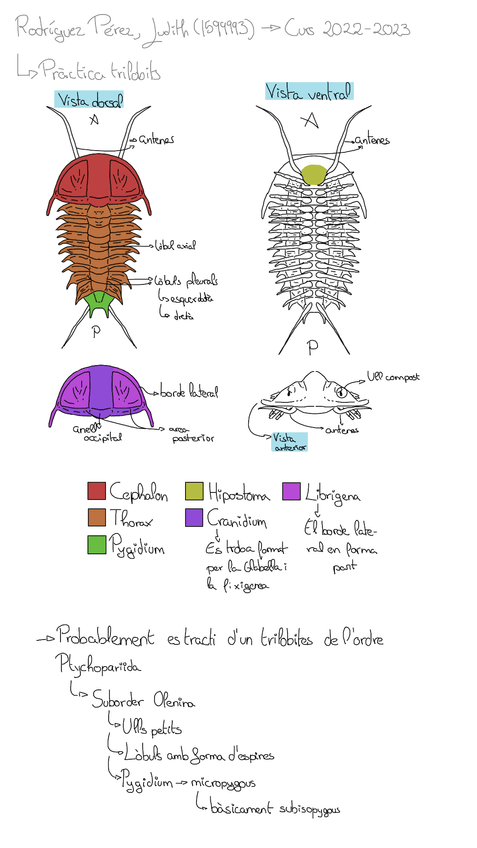 Rodríguez Pérez, Judith (1599993) → Curs 2022-2023
↳ Pràctica trilobits
Vista dorsal
A
antenes
lòbul axial
Lòbuls pleurals
↳ esquerdda
↳ dreta
P
Vista ventral
A
antenes
P
borde lateral
anell
occipital
area
posterior
Ull compost
antenes
Vista
anterior
Cephalon
Hipostoma
Librigena
Thorax
Cranidium
Pygidium
Es troba format
per la Glabella i
la fixigena
El borde late-
ral en forma
part
→ Probablement es tracti d'un trilobites de l'ordre
Ptychopariida
↳ Suborder Olenina
↳ Ulls petits
↳ Lòbuls amb forma d'espines
↳ Pygidium → micropygous
↳ bàsicament subisopygous